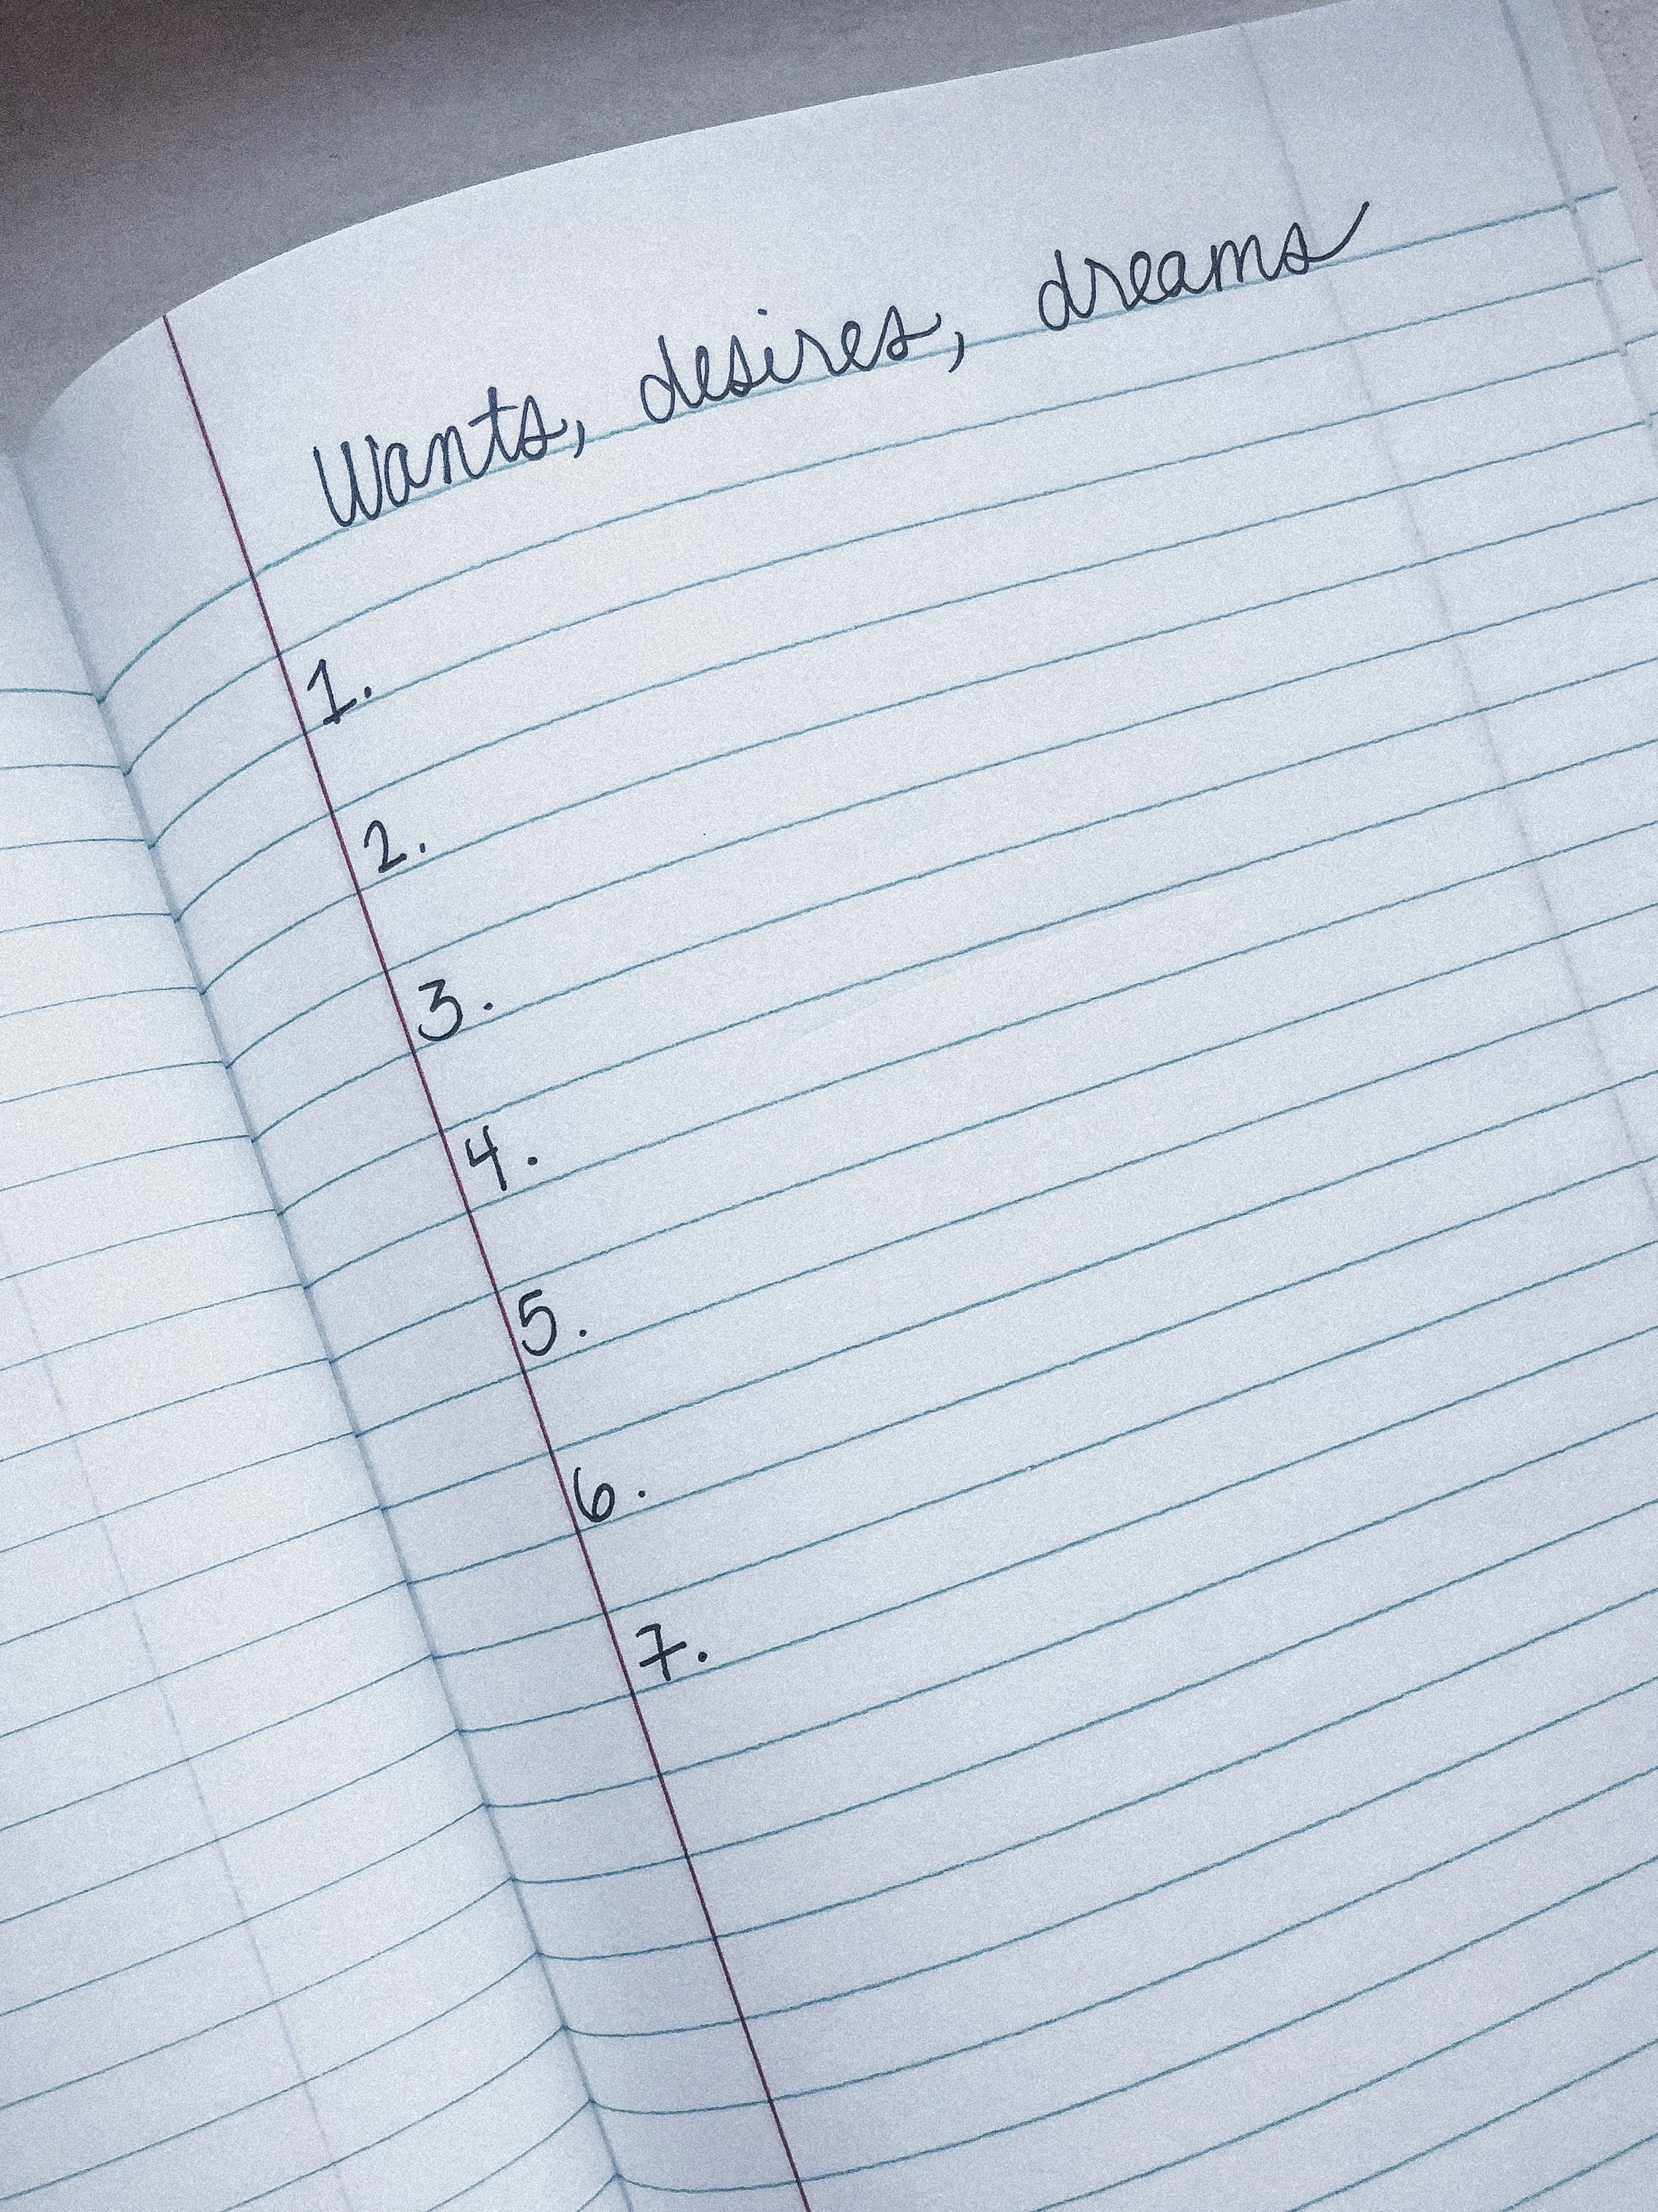 Wants, desires, dreams
1.
2.
3.
4.
5.
6.
7.